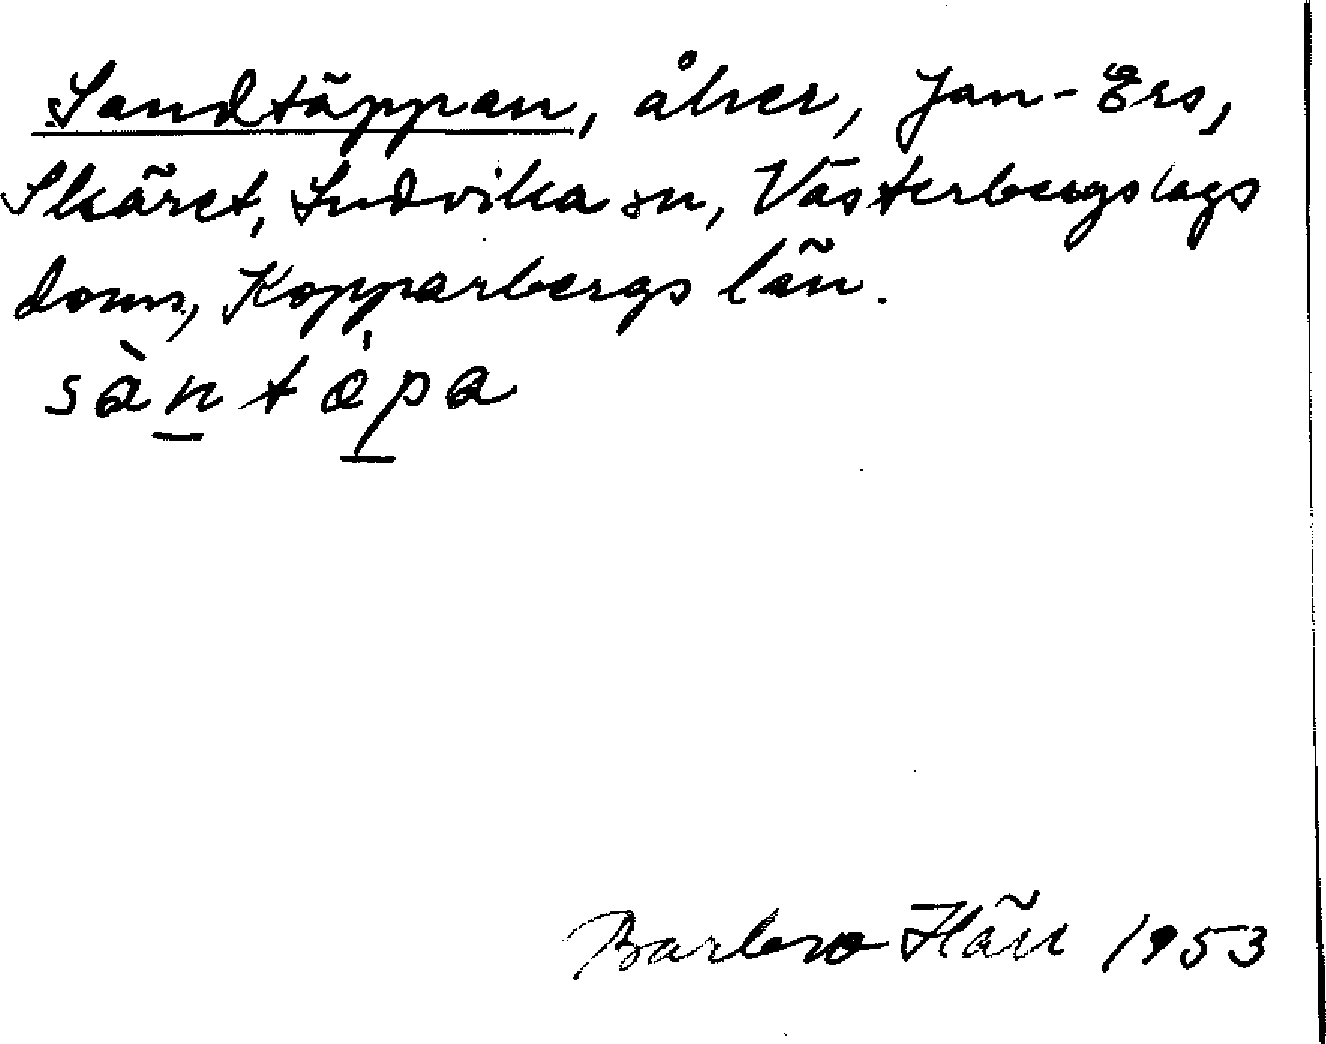 Sandtäppan, åker, Jan-Ers,
Skäret, Ludvika sn, Västerbergslags
doms, Kopparbergs län.
sàntápa
Barbro Hän 1953